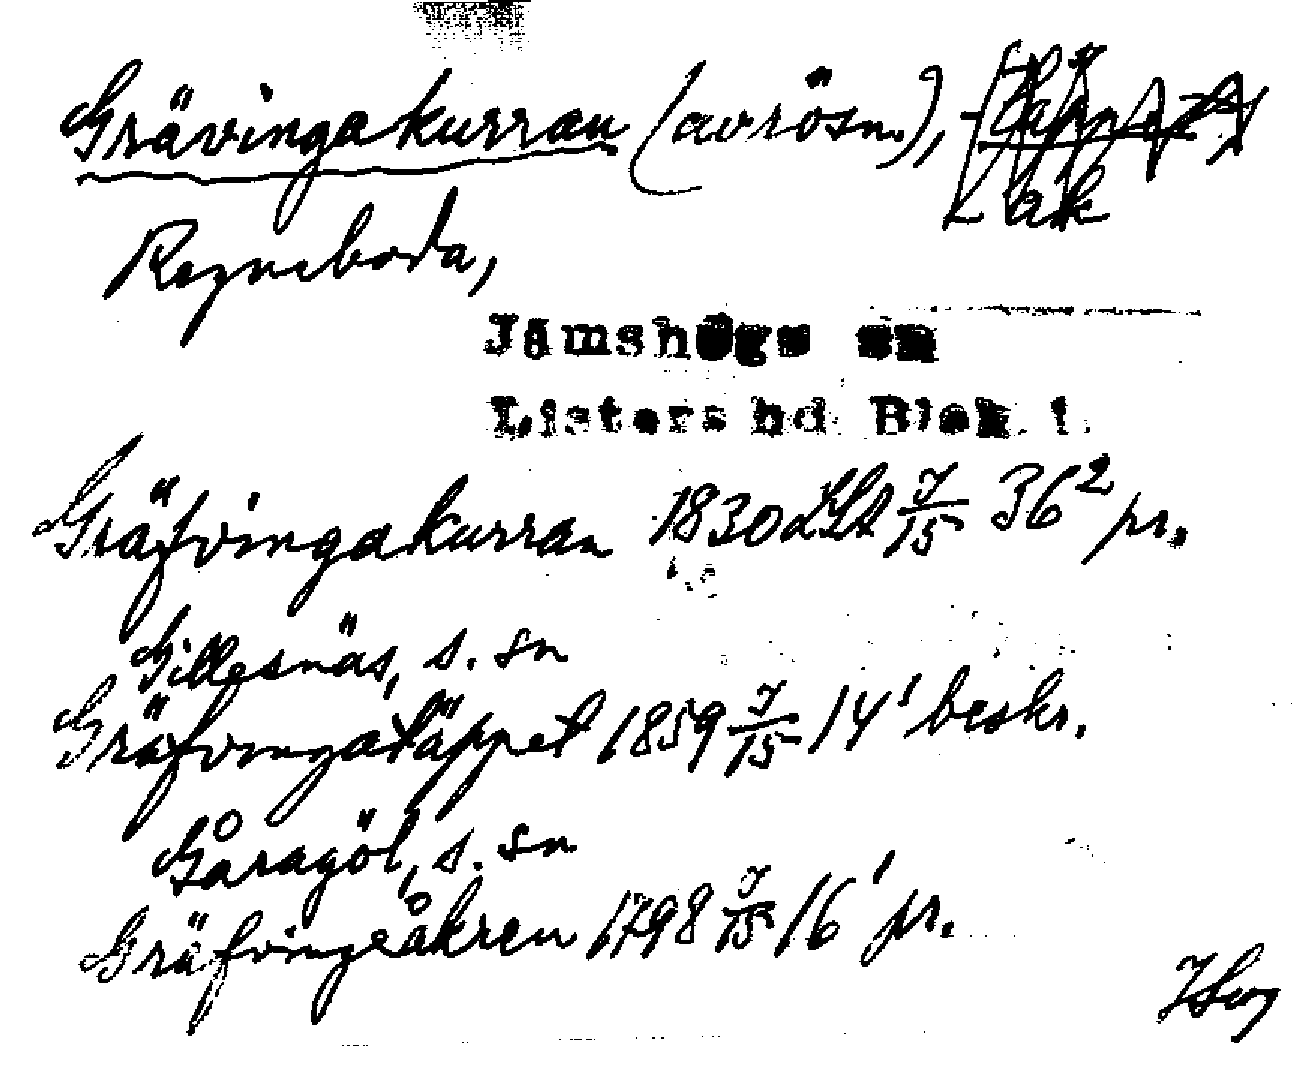 Grävingakurran (avrösn.), Lak
Ragneboda,
Jämshögs sn
Listers hd Blek. l.
Gräfvingakurran 1830 LSA J/15 36² pr.
Gillesnäs, s. sn
Gräfvingatäppet 1859 J/15 14' beskr.
Gåragöl, s. sn
Gräfvingeåkren 1798 J/15 16' pr.